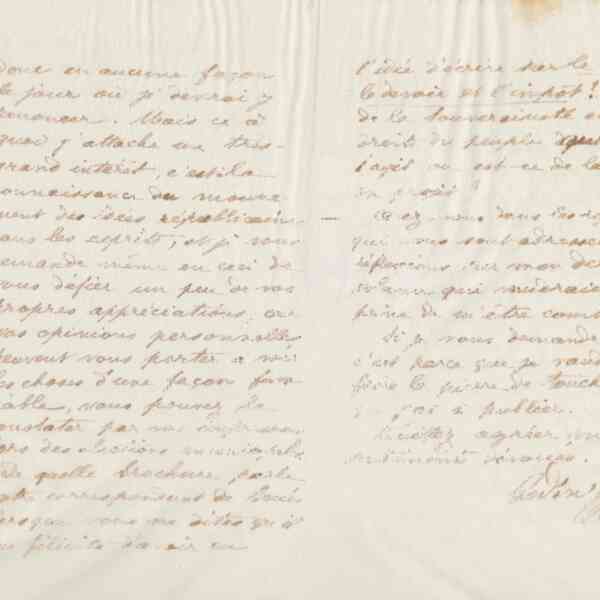 donc en aucune façon
le jour où je devrai y
renoncer. Mais ce à
quoi j'attache un très-
grand intérêt, c'est la
connaissance du mouve
ment des idées républicain
dans les esprits, et je vous
demande même en ceci de
vous défier un peu de vos
propres appréciations, car
vos opinions personnelles
peuvent vous porter à voir
les choses d'une façon favo
rable, vous pouvez
constater par
lors des élections municipales
de quelle brochure parle
correspondant de
lorsque vous me dites qu'il
me félicite d'avoir eu
l'idée d'écrire sur le
le devoir et l'impôt!
de la Souveraineté
droits du peuple
s'agit ou est-ce de la
en projet?
vous dans les
qui vous sont adressées
réflexions sur mon
volume qui
peine de m'être
Si je vous demande
c'est parce que je
faire la pierre de touche
j'ai à publier.
Veuillez agréer
sentiments dévoués.
Godin